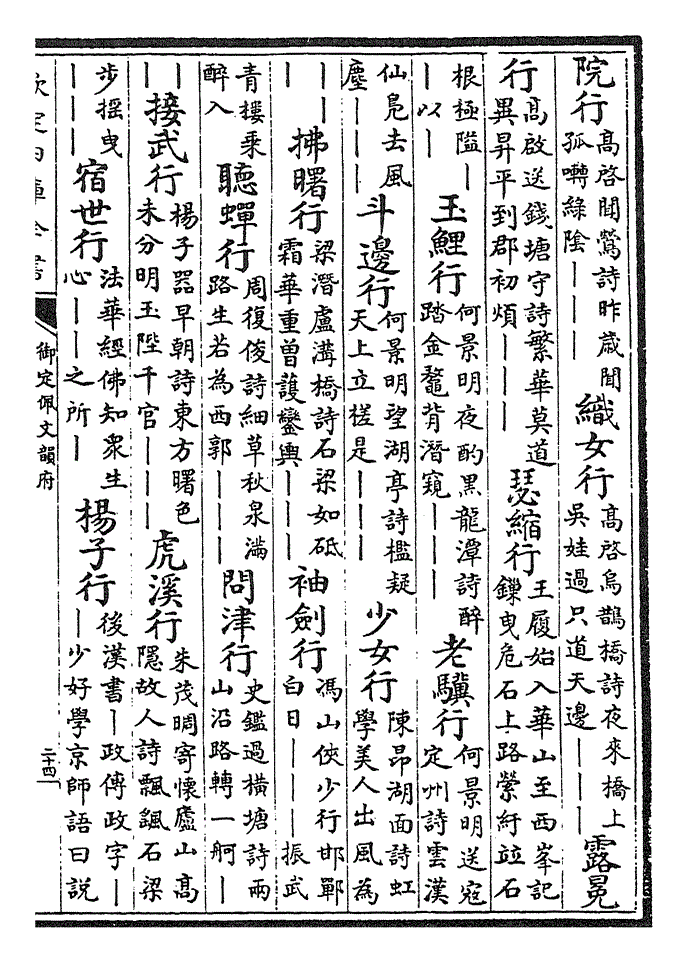 院行高啓聞鶯詩昨歳聞孤囀綠陰｜｜｜織女行高啓烏鵲橋詩夜來橋上吳娃過只道天邊｜｜｜露冕
行高啟送錢塘守詩繁華莫道異昇平到郡初煩｜｜｜瑟縮行王履始入華山至西峯記鏁曳危石上路縈紆竝石
根極隘｜｜以｜玉鯉行何景明夜酌黑龍潭詩醉踏金鼇背潛窺｜｜｜老驥行何景明送寇定州詩雲漢
仙鳧去風塵｜｜｜斗邊行何景明望湖亭詩檻疑天上立槎是｜｜｜少女行陳昂湖面詩虹學美人出風為
｜｜｜拂曙行梁潛盧溝橋詩石梁如砥霜華重曽護鑾輿｜｜｜袖劍行馮山俠少行邯鄲白日｜｜｜振武
青樓乘醉入聽蟬行周復俊詩細草秋泉滿路生若為西郭｜｜｜問津行史鑑過橫塘詩兩山沿路轉一舸｜
｜｜接武行楊子噐早朝詩東方曙色未分明玉陛千官｜｜｜虎溪行朱茂晭寄懷廬山高隠故人詩飄颻石梁
步摇曳｜｜｜宿世行法華經佛知衆生心｜｜之所｜楊子行後漢書｜政傳政字｜｜少好學京師語曰説
御定佩文韻府
二十四